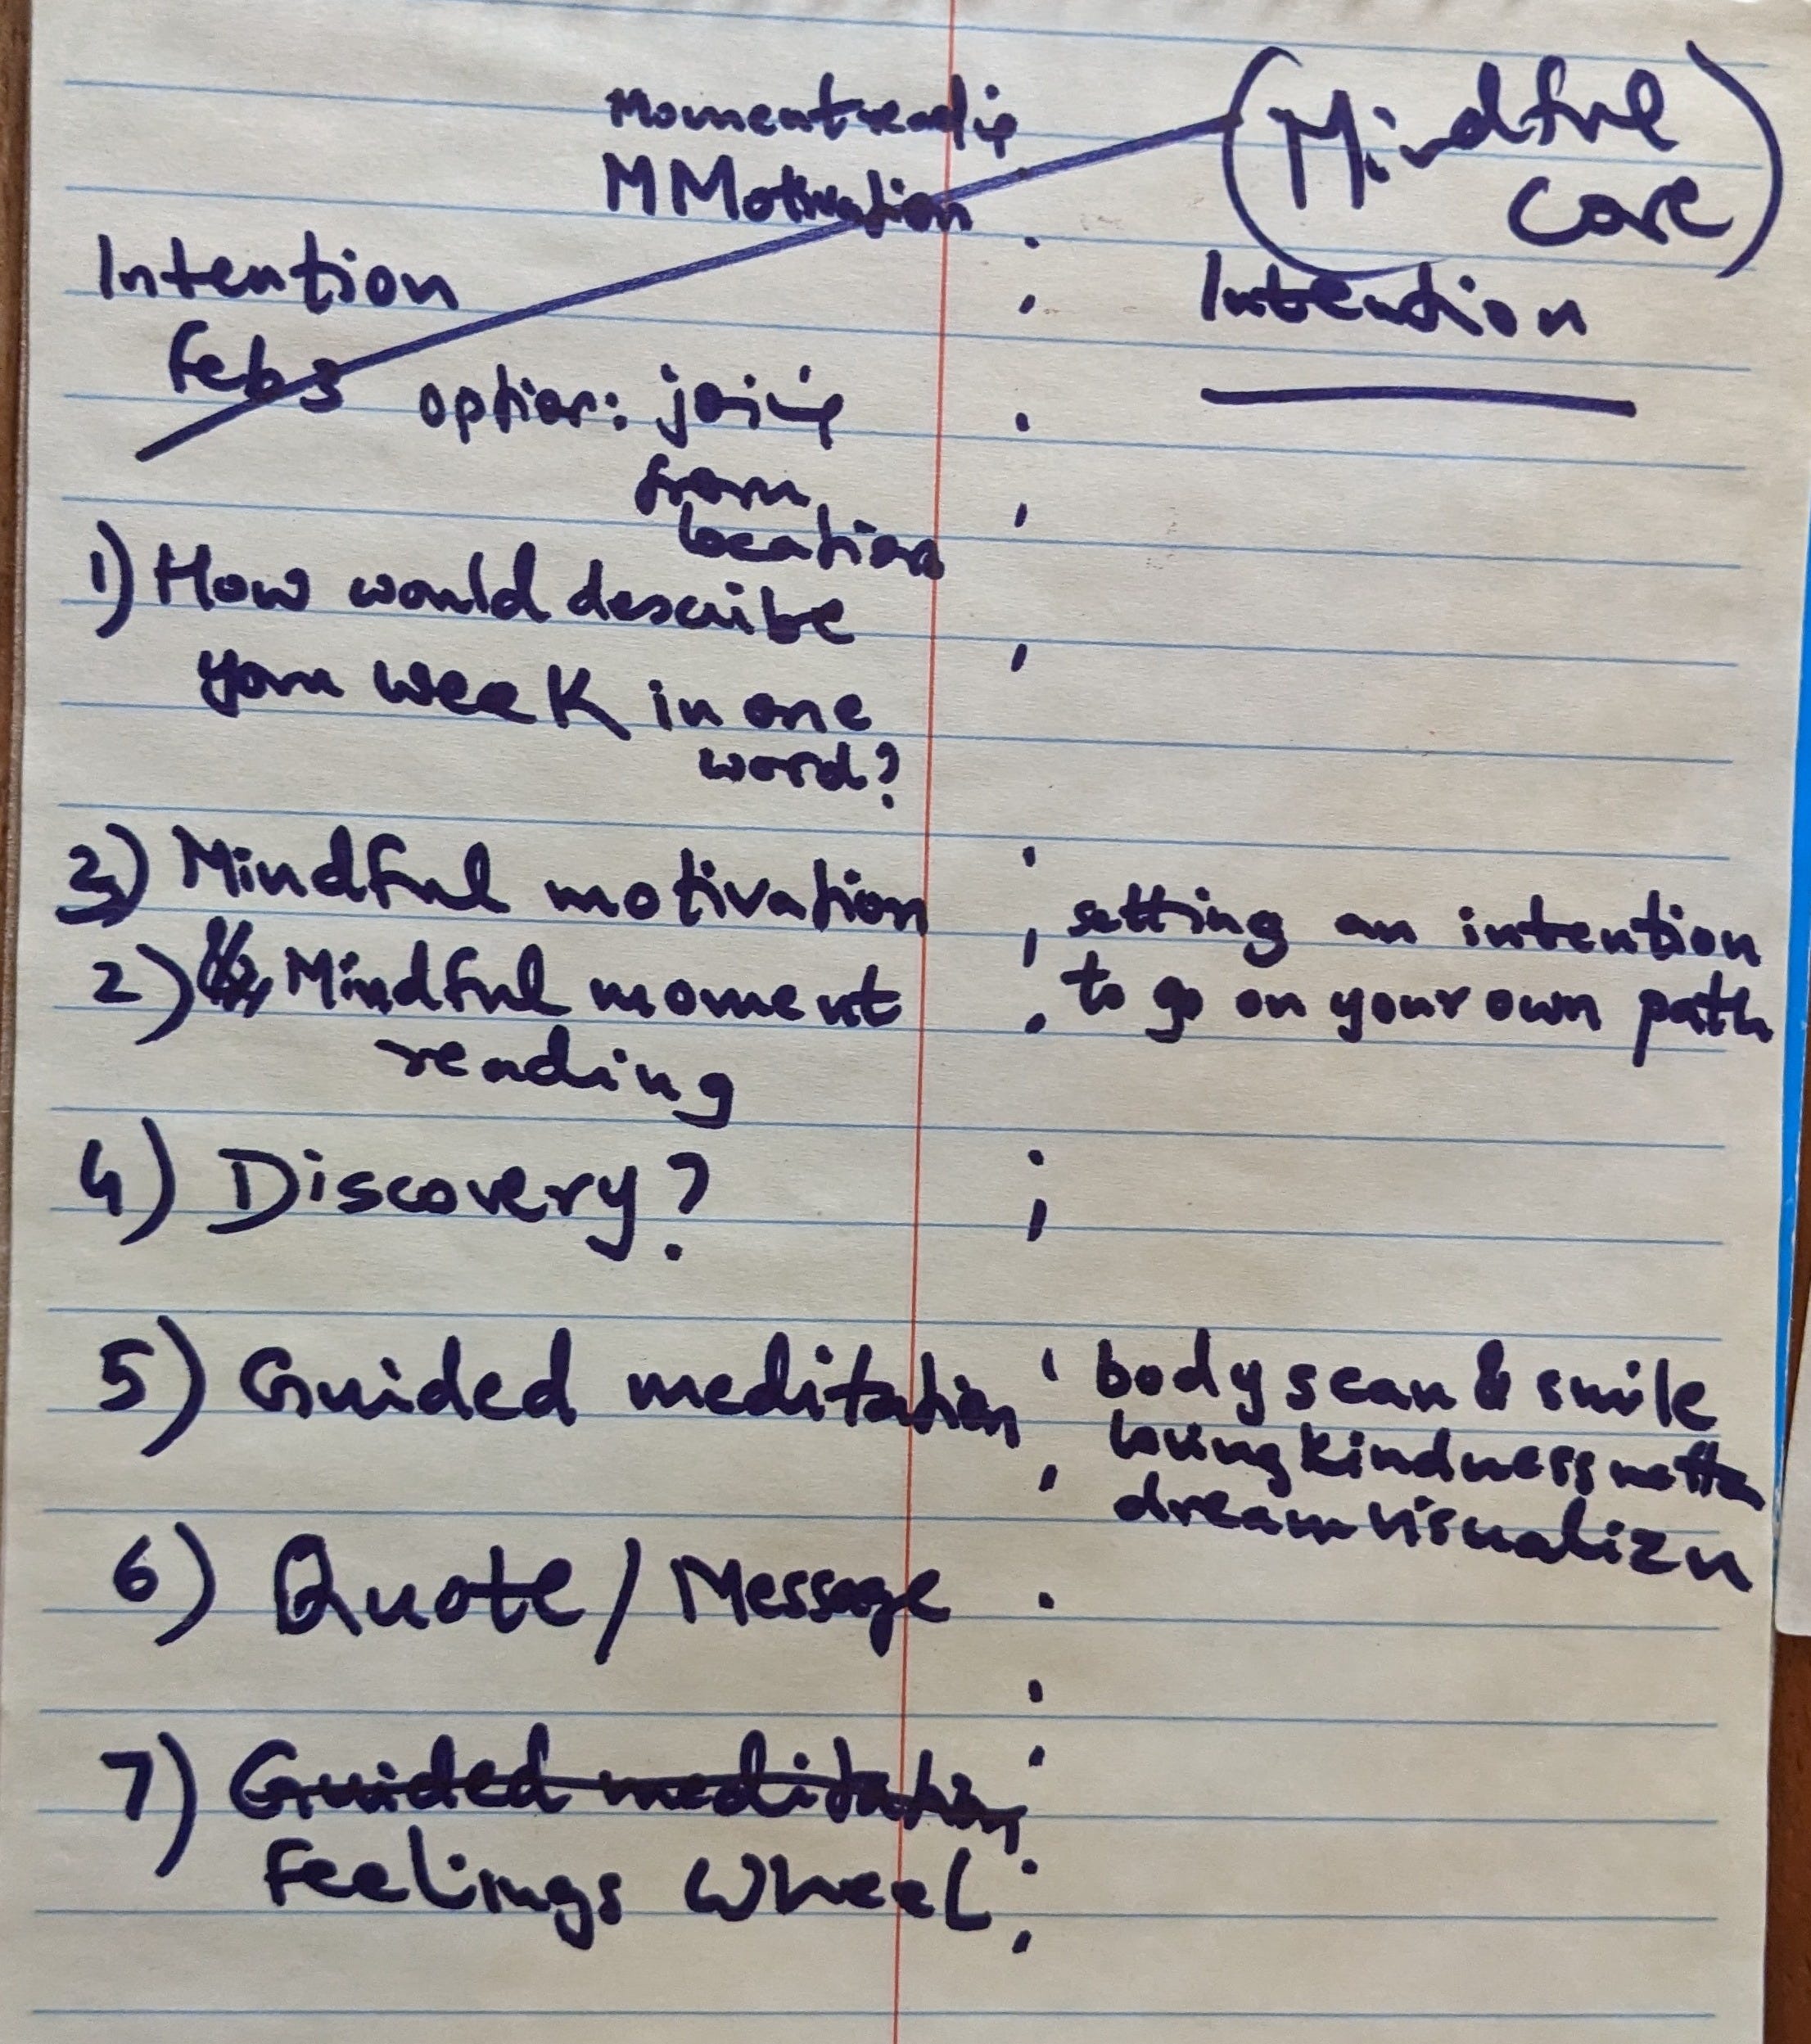 Moment readig
MMotivation
(Mindful
Care)
Intention
Intention
Feb 3
option: joinig
from
location
1) How would describe
your week in one
word?
3) Mindful motivation
setting an intention
2) Mindful moment
to go on your own path
reading
4) Discovery?
5) Guided meditation
body scan & smile
loving kindness metta
dream visualizn
6) Quote / Message
7) Guided meditation
Feelings Wheel